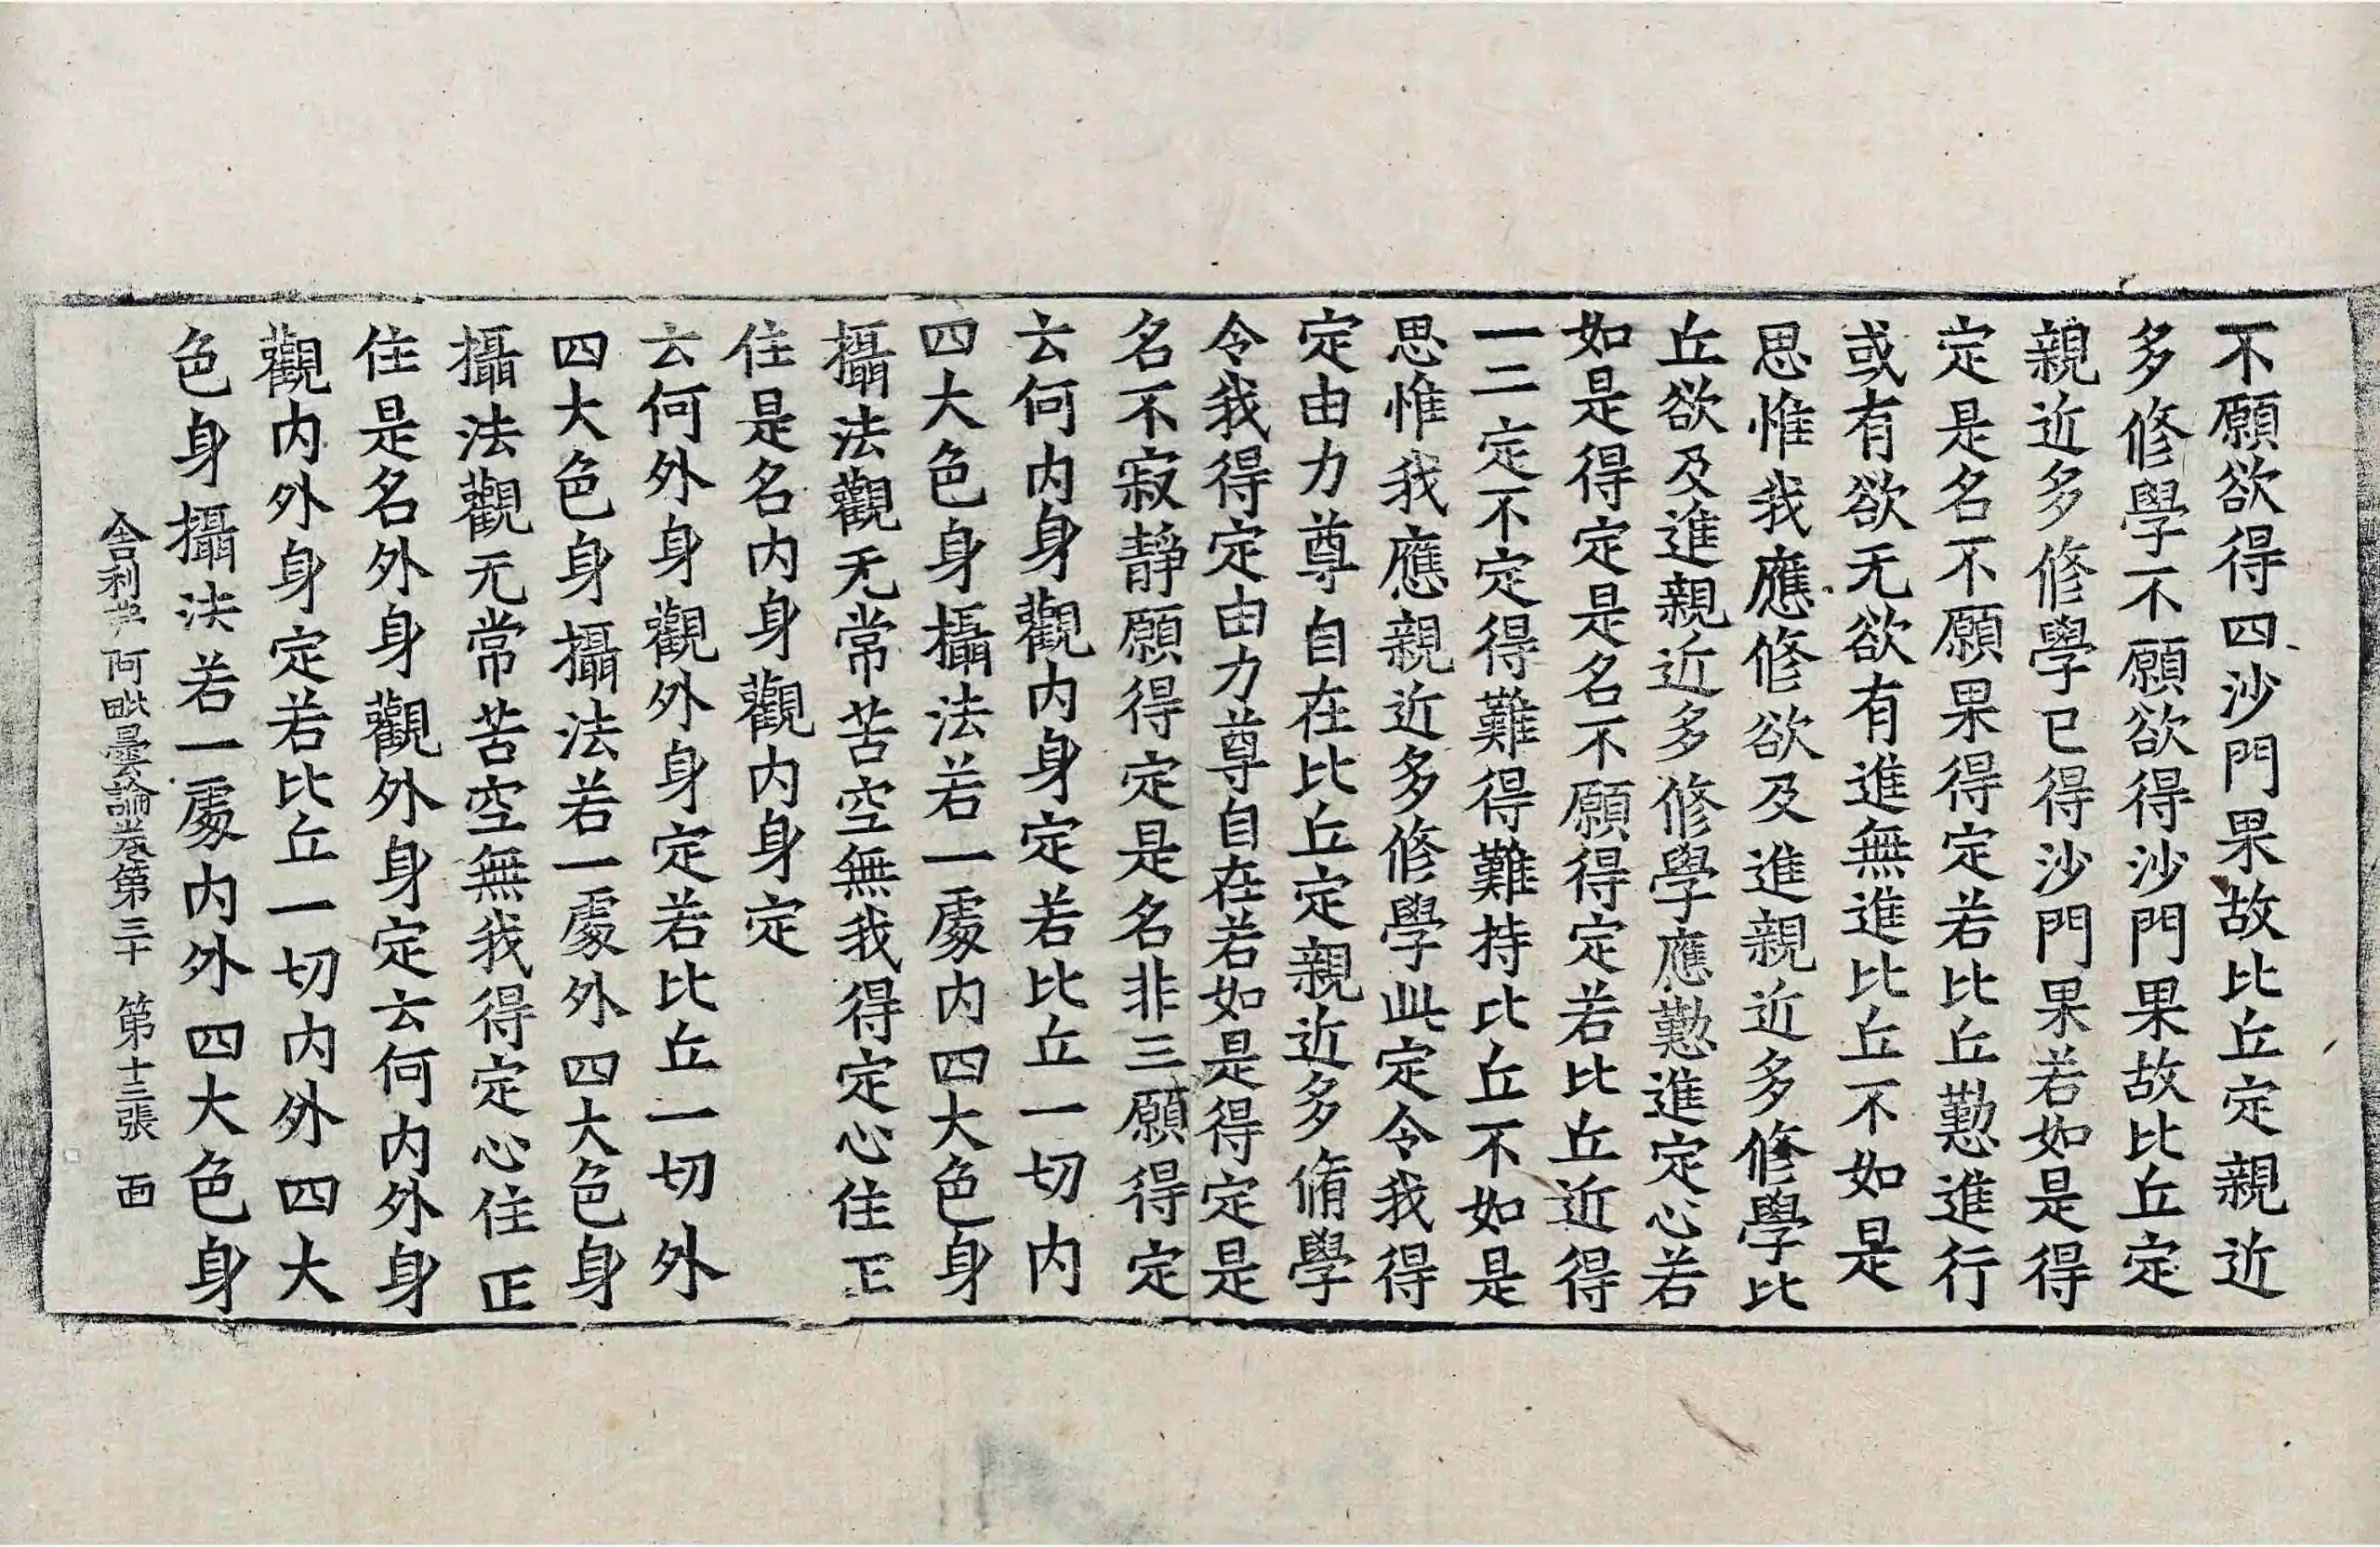 不願欲得四沙門果故比丘定親近
多修學不願欲得沙門果故比丘定
親近多修學已得沙門果若如是得
定是名不願果得定若比丘懃進行
或有欲无欲有進無進比丘不如是
思惟我應修欲及進親近多修學比
丘欲及進親近多修學應懃進定心若
如是得定是名不願得定若比丘近得
一二定不定得難得難持比丘不如是
思惟我應親近多修學此定令我得
定由力尊自在比丘定親近多脩學
令我得定由力尊自在若如是得定是
名不寂靜願得定是名非三願得定
云何内身觀内身定若比丘一切内
四大色身攝法若一處内四大色身
攝法觀无常苦空無我得定心住正
住是名内身觀内身定
云何外身觀外身定若比丘一切外
四大色身攝法若一處外四大色身
攝法觀无常苦空無我得定心住正
住是名外身觀外身定云何内外身
觀内外身定若比丘一切内外四大
色身攝法若一處内外四大色身
舍利弗阿毗曇論卷第三十 第十三張 畫